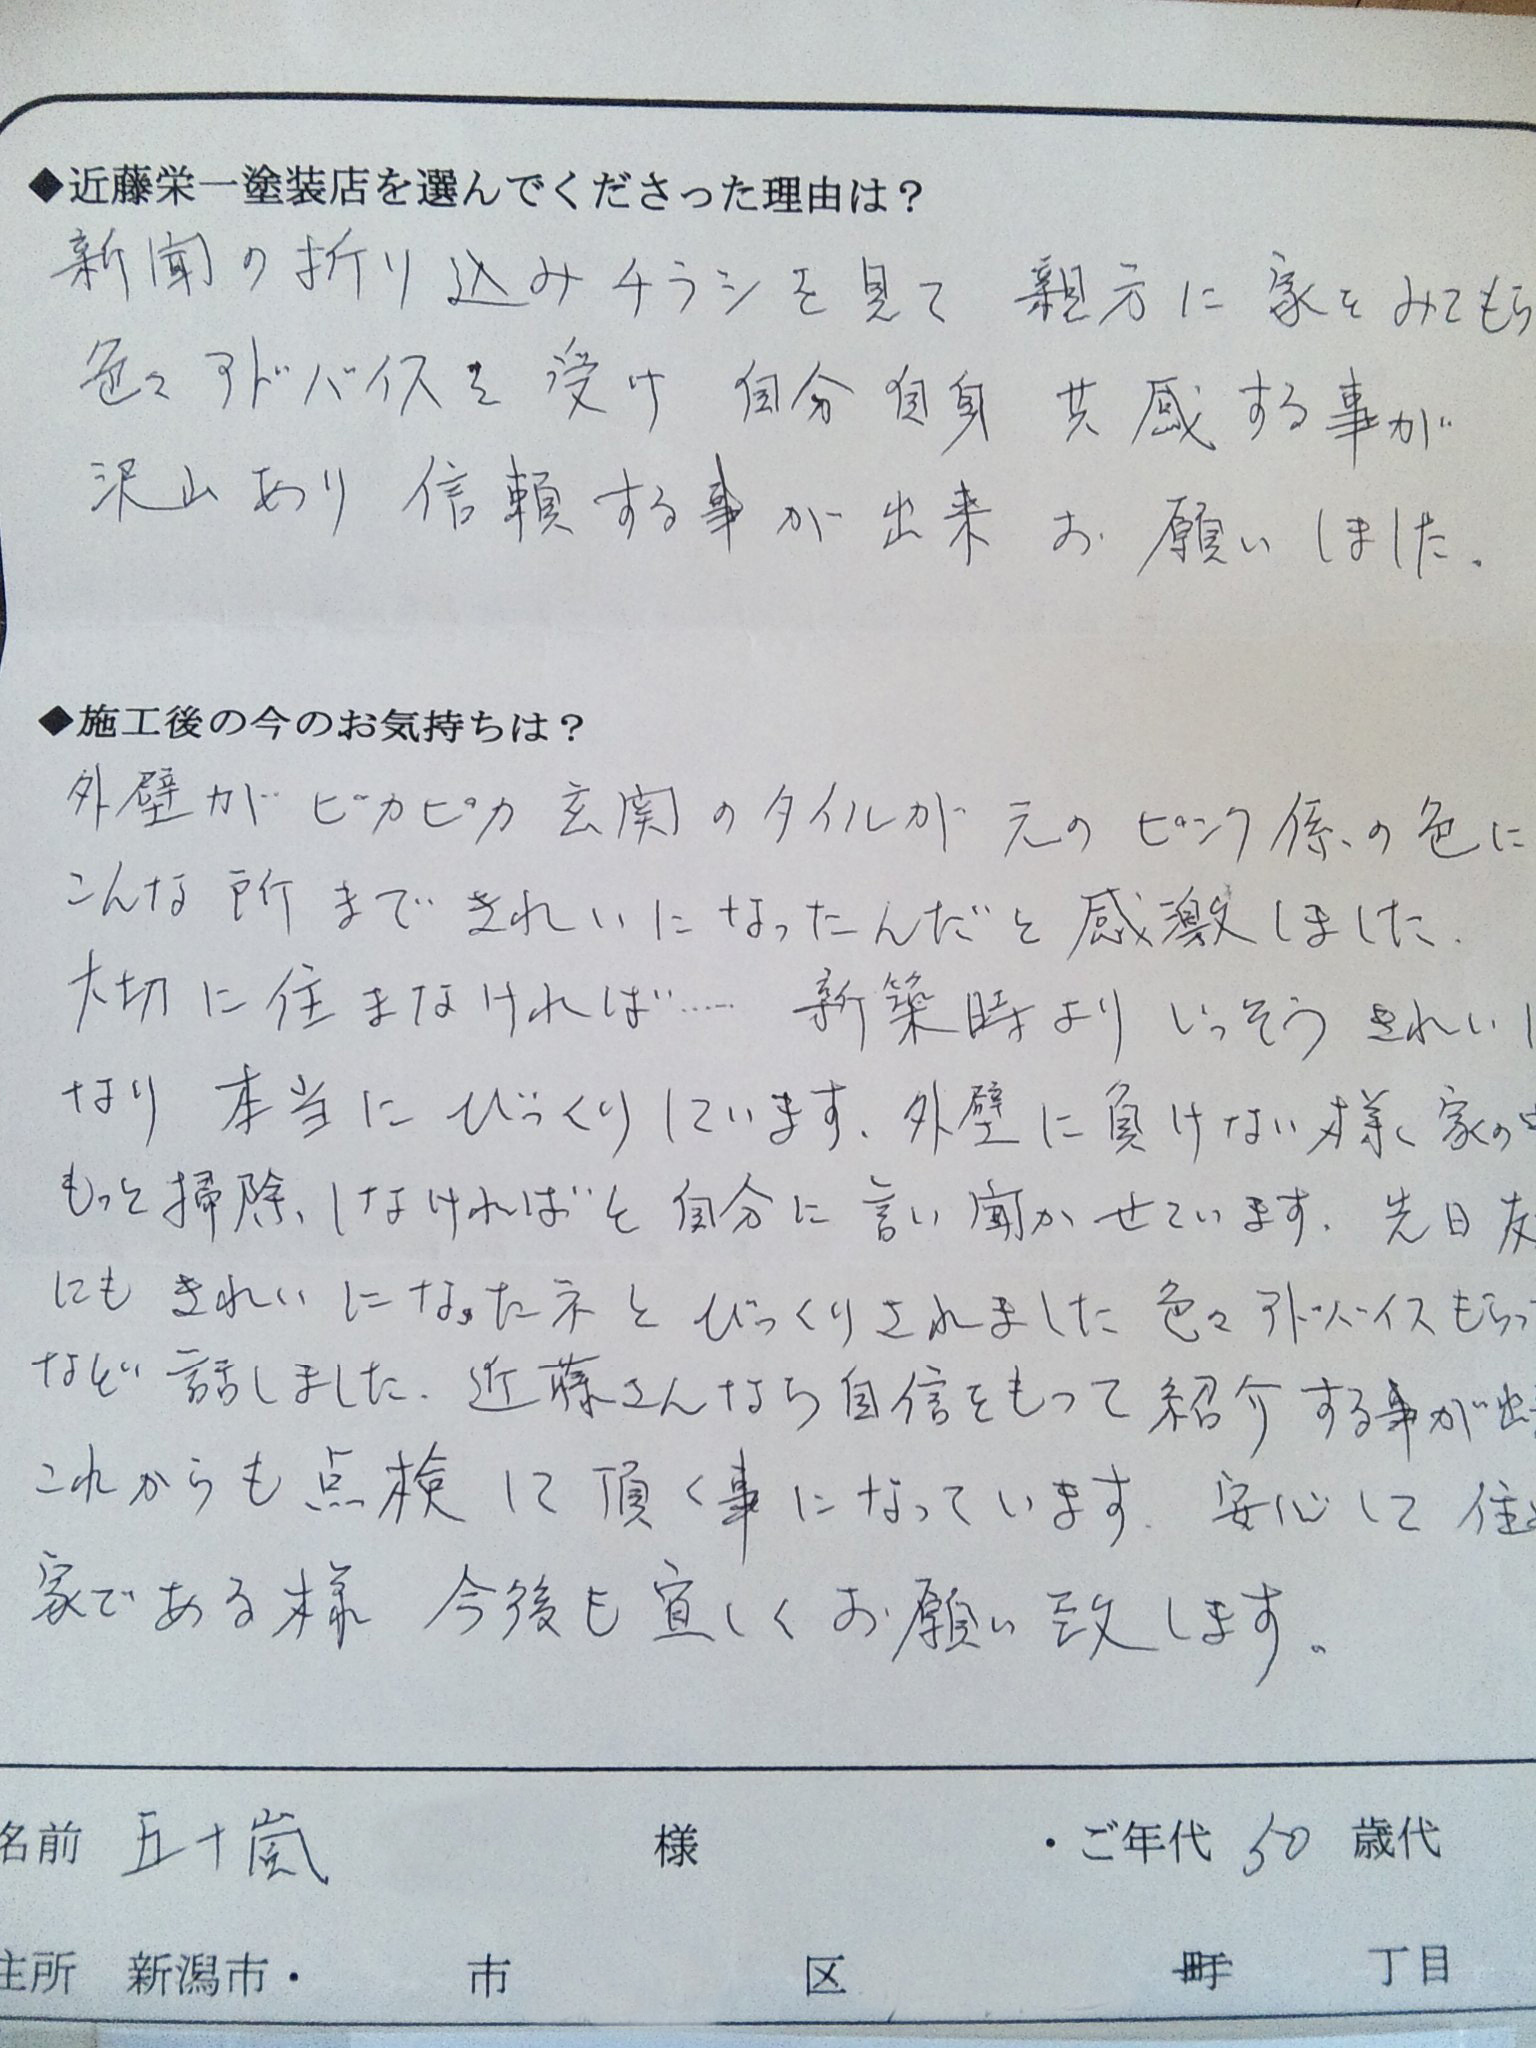 ◆近藤栄一塗装店を選んでくださった理由は？
新聞の折り込みチラシを見て 親方に家をみてもら
色々アドバイスを受け 自分自身 共感する事が
沢山あり 信頼する事が出来 お願いしました。
◆施工後の今のお気持ちは？
外壁がピカピカ 玄関のタイルが元のピンク係の色に
こんな所まできれいになったんだと感激しました.
大切に住まなければ…… 新築時よりいっそうきれいに
なり 本当にびっくりしています. 外壁に負けない様、家の
もっと掃除しなければと自分に言い聞かせています. 先日
にもきれいになったネとびっくりされました 色々アドバイスもらっ
など話しました. 近藤さんなら自信をもって紹介する事が出
これからも点検して頂く事になっています. 安心して住
家である様 今後も宜しくお願い致します。
名前 五十嵐 様 ・ご年代 50 歳代
住所 新潟市・ 市 区 町 丁目